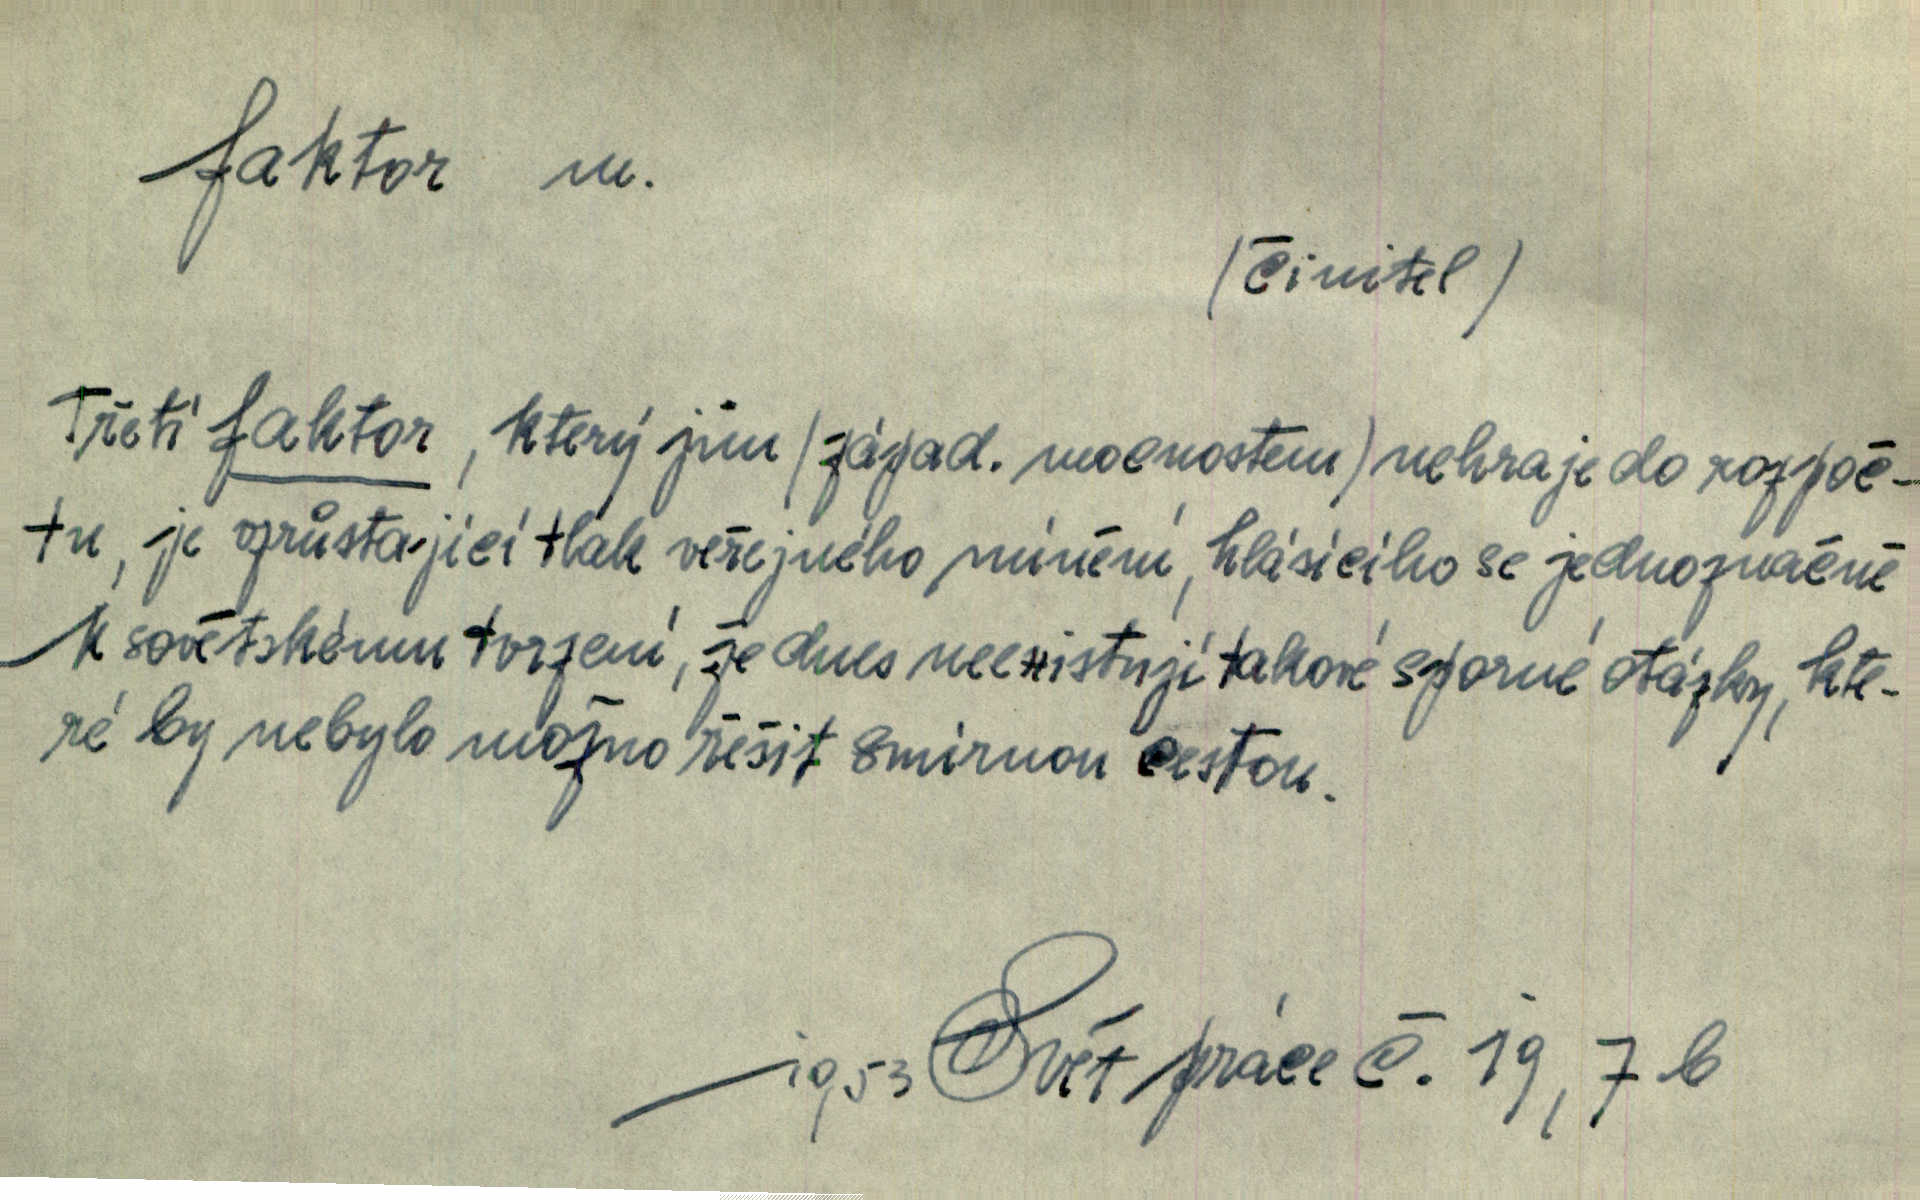 faktor m.
(činitel)
Třetí faktor, který jim (západ. mocnostem) nehraje do rozpoč-
tu, je vzrůstající tlak veřejného mínění, hlásícího se jednoznačně
k sovětskému tvrzení, že dnes neexistují takové sporné otázky, kte-
ré by nebylo možno řešit smírnou cestou.
1953 Svět práce č. 19, 7 b